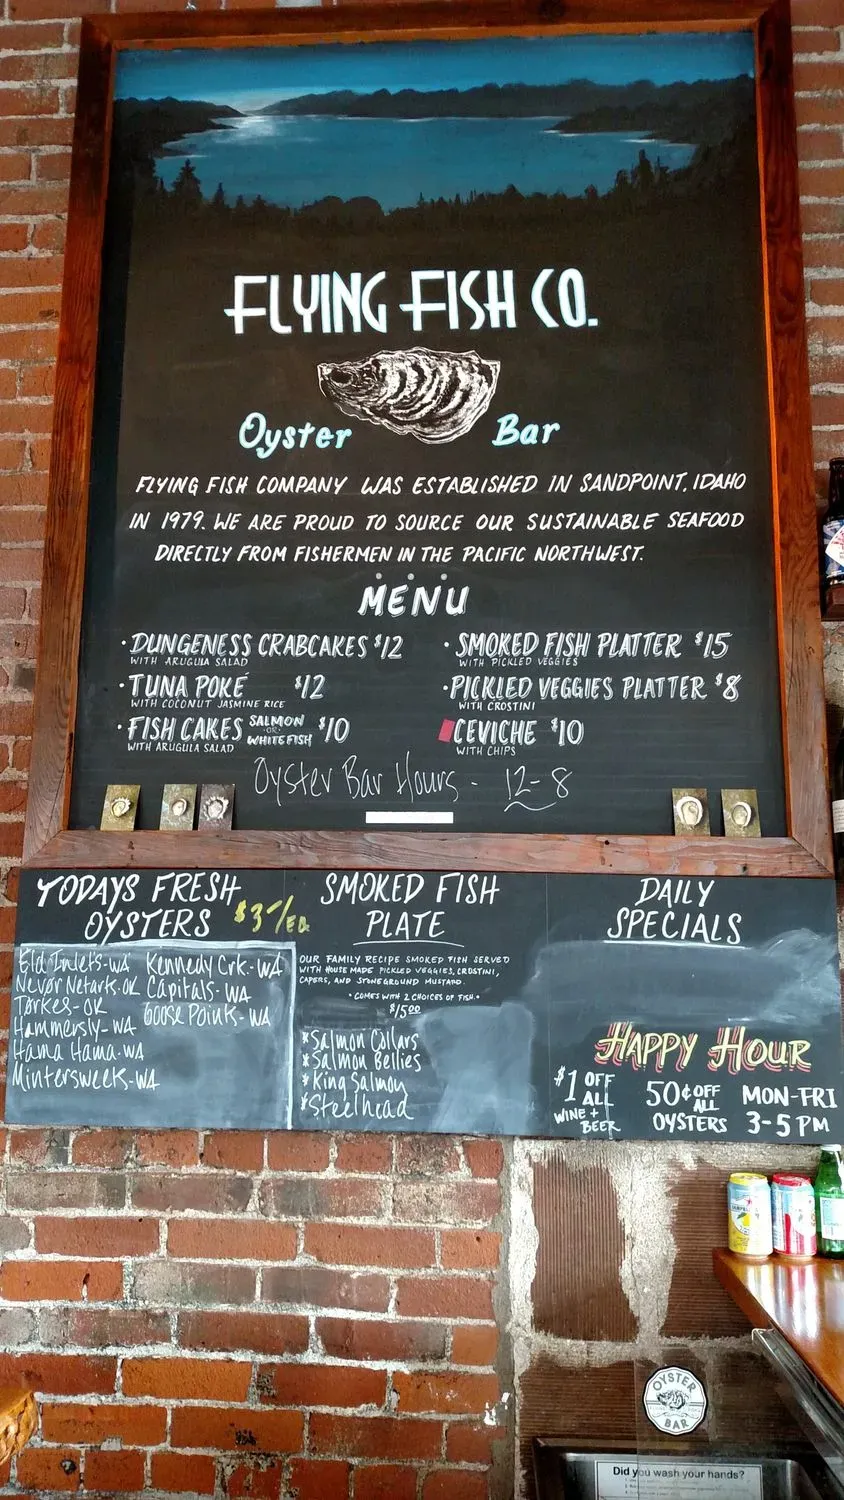 FLYING FISH CO.
Oyster Bar
FLYING FISH COMPANY WAS ESTABLISHED IN SANDPOINT, IDAHO
IN 1979. WE ARE PROUD TO SOURCE OUR SUSTAINABLE SEAFOOD
DIRECTLY FROM FISHERMEN IN THE PACIFIC NORTHWEST.
MENU
· DUNGENESS CRABCAKES $12
WITH ARUGULA SALAD
· TUNA POKE $12
WITH COCONUT JASMINE RICE
· FISH CAKES SALMON OR WHITEFISH $10
WITH ARUGULA SALAD
· SMOKED FISH PLATTER $15
WITH PICKLED VEGGIES
· PICKLED VEGGIES PLATTER $8
WITH CROSTINI
CEVICHE $10
WITH CHIPS
Oyster Bar Hours - 12-8
TODAYS FRESH
OYSTERS $3-/EA
Eld Inlets-WA
Nevor Netarts-OR
Torkes-OR
Hammersly-WA
Hama Hama-WA
Mintersweek-WA
Kennedy Crk.-WA
Capitals-WA
Goose Points-WA
SMOKED FISH
PLATE
OUR FAMILY RECIPE SMOKED FISH SERVED
WITH HOUSE MADE PICKLED VEGGIES, CROSTINI,
CAPERS, AND STONEGROUND MUSTARD.
· COMES WITH 2 CHOICES OF FISH. ·
$15.00
*Salmon Collars
*Salmon Bellies
*King Salmon
*Steelhead
DAILY
SPECIALS
HAPPY HOUR
$1 OFF
ALL
WINE +
BEER
50¢ OFF
ALL
OYSTERS
MON-FRI
3-5 PM
OYSTER
BAR
Did you wash your hands?